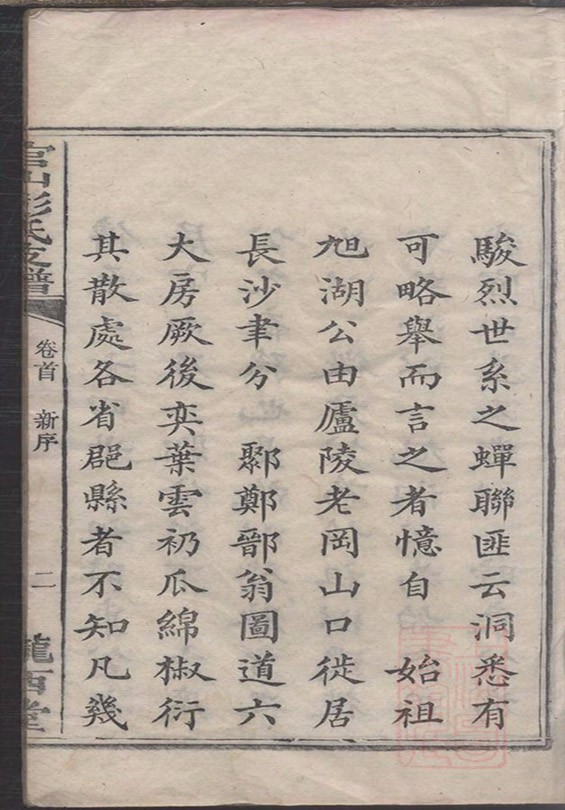 駿烈世系之蟬聯匪云洞悉有
可略舉而言之者憶自 始祖
旭湖公由廬陵老岡山口徙居
長沙聿分 鄹鄭鄑翁圖道六
大房厥後奕葉雲礽瓜綿椒衍
其散處各省郡縣者不知凡幾
官山彭氏支譜
卷首 新序
二